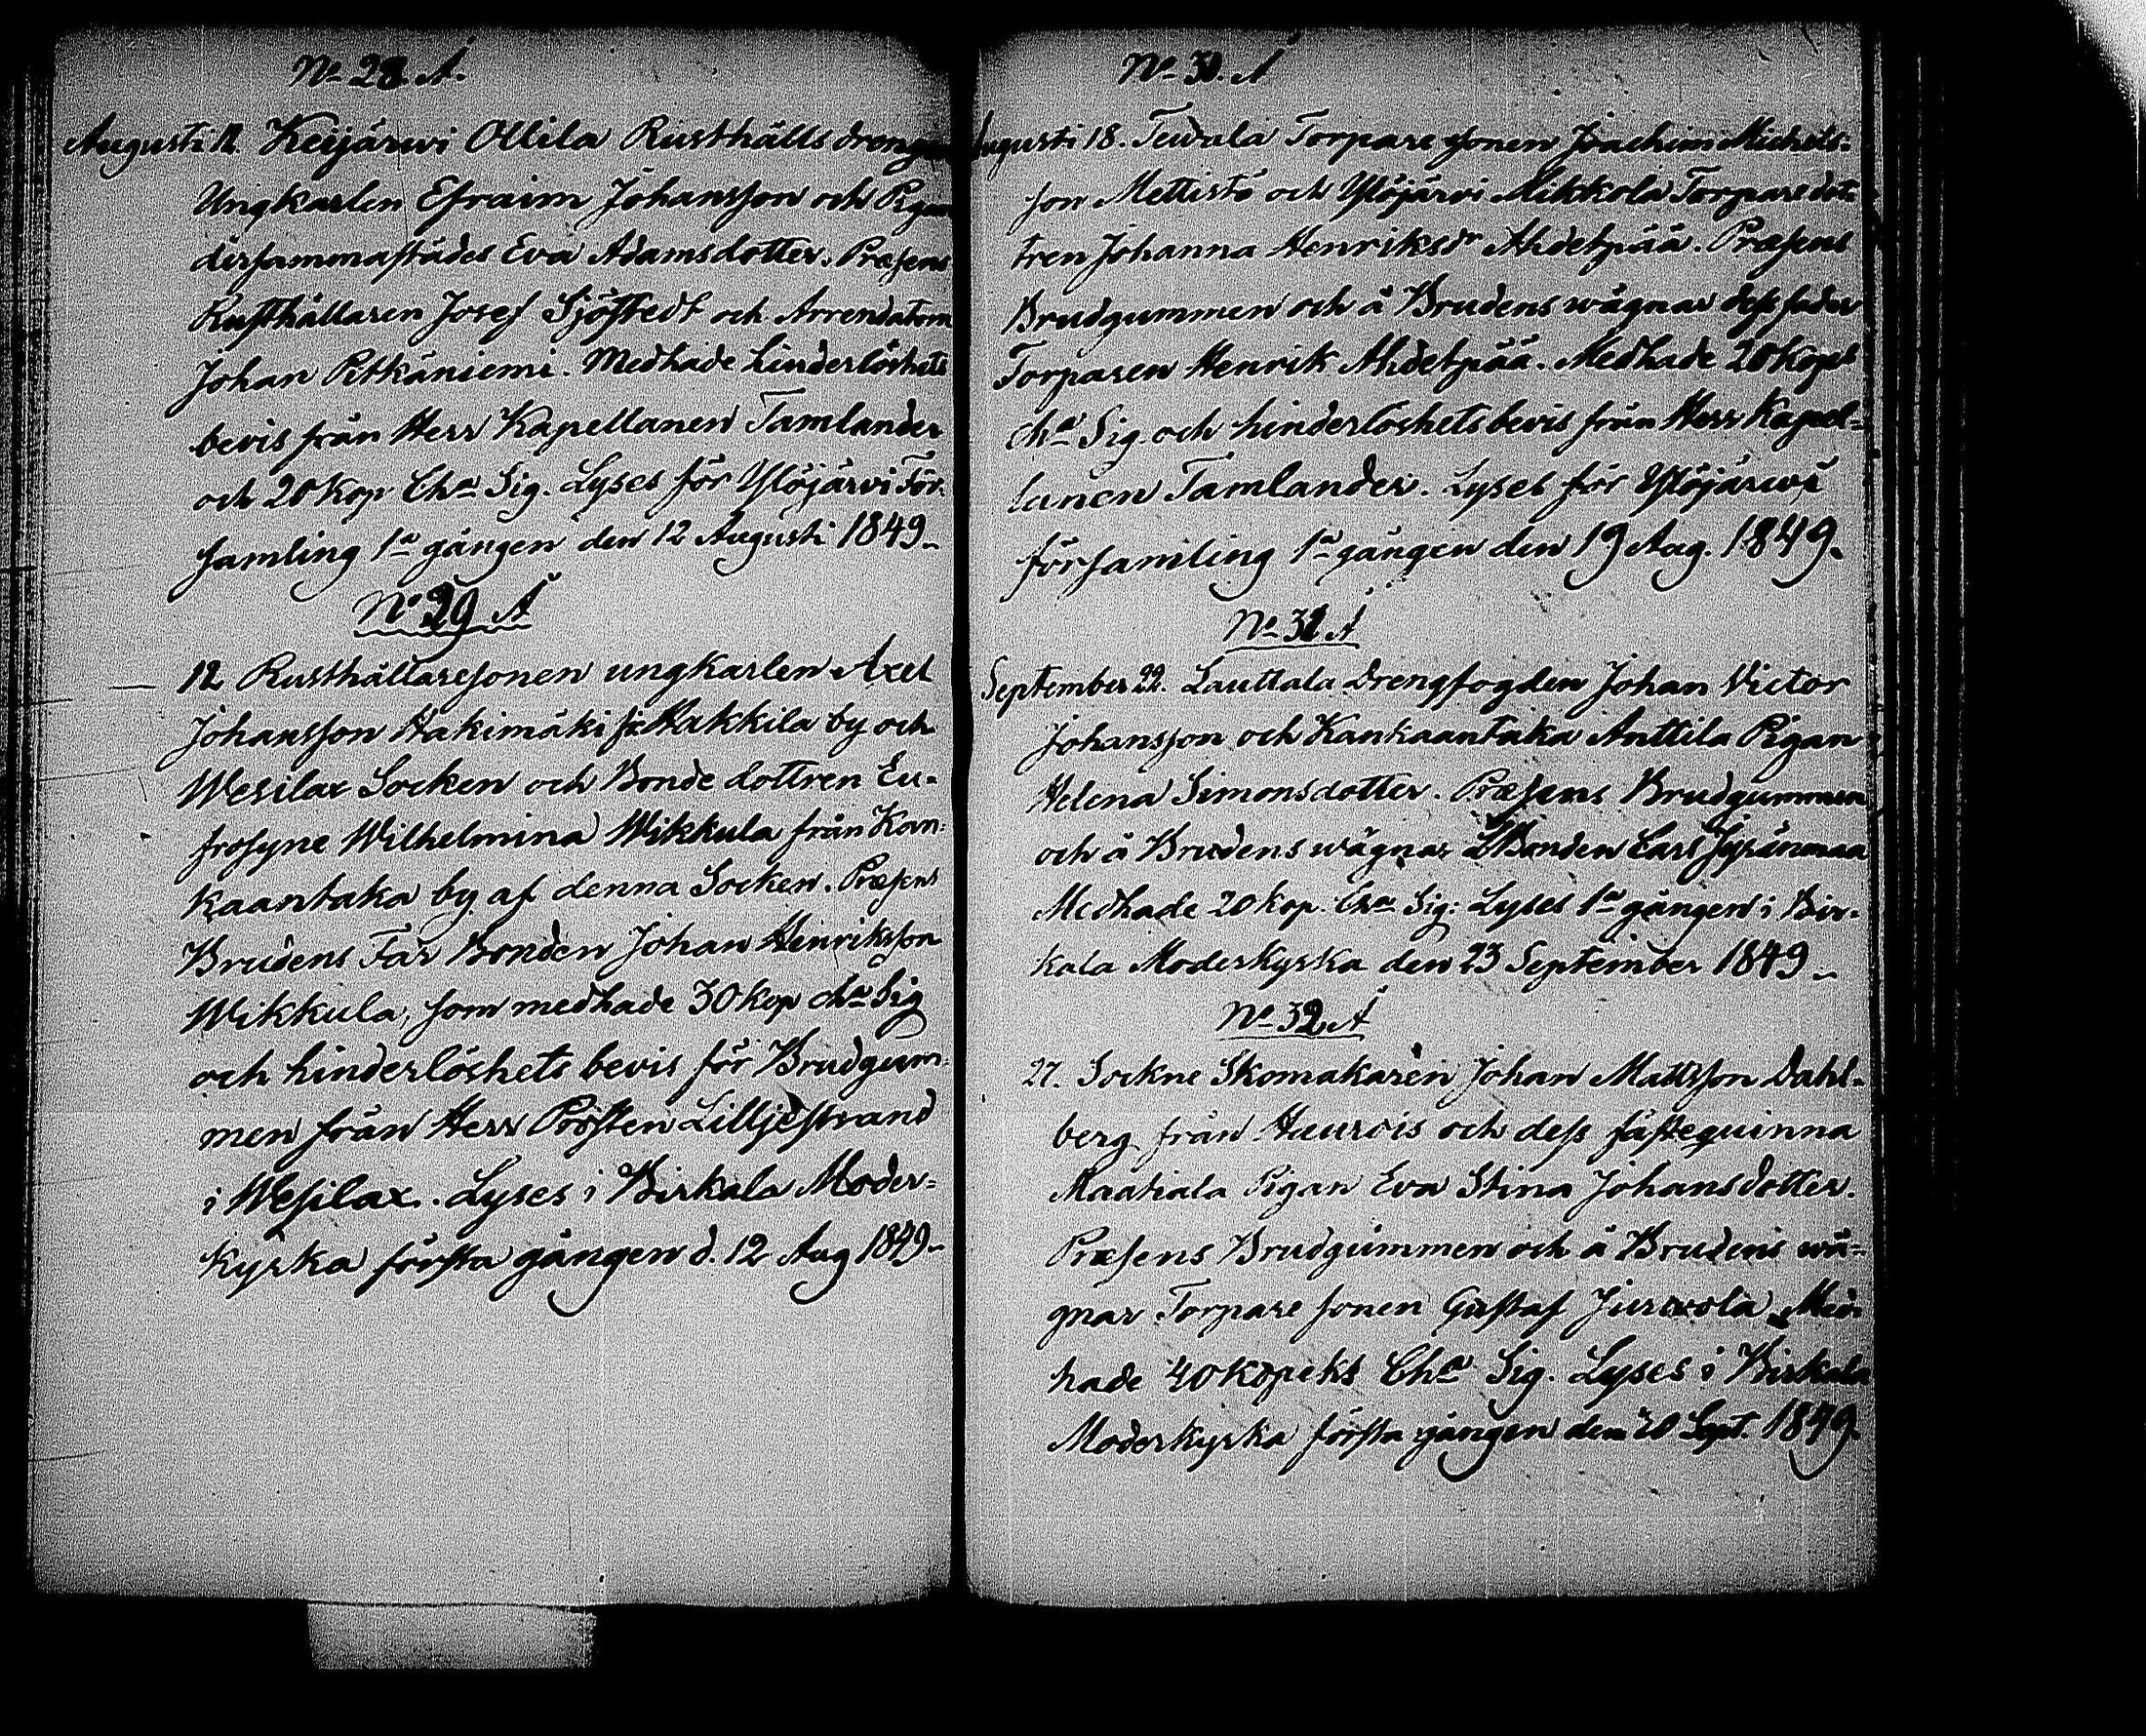 No 28. A.
Augusti 12. Keijärwi Ollila Rusthålls drengen
Ungkarlen Efraim Johansson och Pigan
dersammastädes Eva Adamsdotter. Præsens
Rusthållaren Josef Sjöstedt och Arrendatorn
Johan Pitkäniemi. Medhade hinderlöshets
bevis från Herr Kapellanen Tamlander
och 20 kop Cha Sig. Lyses för Ylöjärvi För-
samling 1a gången den 12 Augusti 1849.
No 29 A
12 Rusthållaresonen ungkarlen Axel
Johansson Hakimäki fr Hakkila by och
Wesilax Socken och Bonde dottren Eu-
frosyne Wilhelmina Wikkula från Kan-
kaantaka by af denna Socken. Præsens
Brudens Far Bonden Johan Henriksson
Wikkula, som medhade 30 kop cha Sig
och hinderlöshets bevis för Brudgum-
men från Herr Prosten Lilljestrand
i Wesilax. Lyses i Birkala Moder-
kyrka första gången d. 12 Aug 1849.
No 30. A
Augusti 18. Teivala Torpare sonen Joachim Michels-
son Mettistö och Ylöjärvi Mikkola Torpare dot-
tren Johanna Henriksdr Ahdetpää. Præsens
Brudgummen och å Brudens wägnar dess fader
Torparen Henrik Ahdetpää. Medhade 20 kop
cha Sig. och hinderlöshetsbevis från Herr Kapel-
lanen Tamlander. Lyses för Ylöjärwi
församling 1a gången den 19 Aug. 1849.
No 31 A
September 22. Lauttala Drengfogden Johan Victor
Johansson och Kankaantaka Anttila Pigan
Helena Simonsdotter. Præsens Brudgummen
och å Brudens wägnar Bonden Lars
Medhade 20 kop. Cha Sig: Lyses 1a gången i Bir-
kala Moderkyrka den 23 September 1849.
No 32 A
27. Sockne Skomakaren Johan Mattsson Dahl-
berg från Haurois och dess fästequinna
Maatiala Pigan Eva Stina Johansdotter.
Præsens Brudgummen och å Brudens wä-
gnar Torpare sonen Gustaf Jurwola Med-
hade 40 kopeks Cha Sig. Lyses i Birkala
Moderkyrka första gången den 30 Sept. 1849.